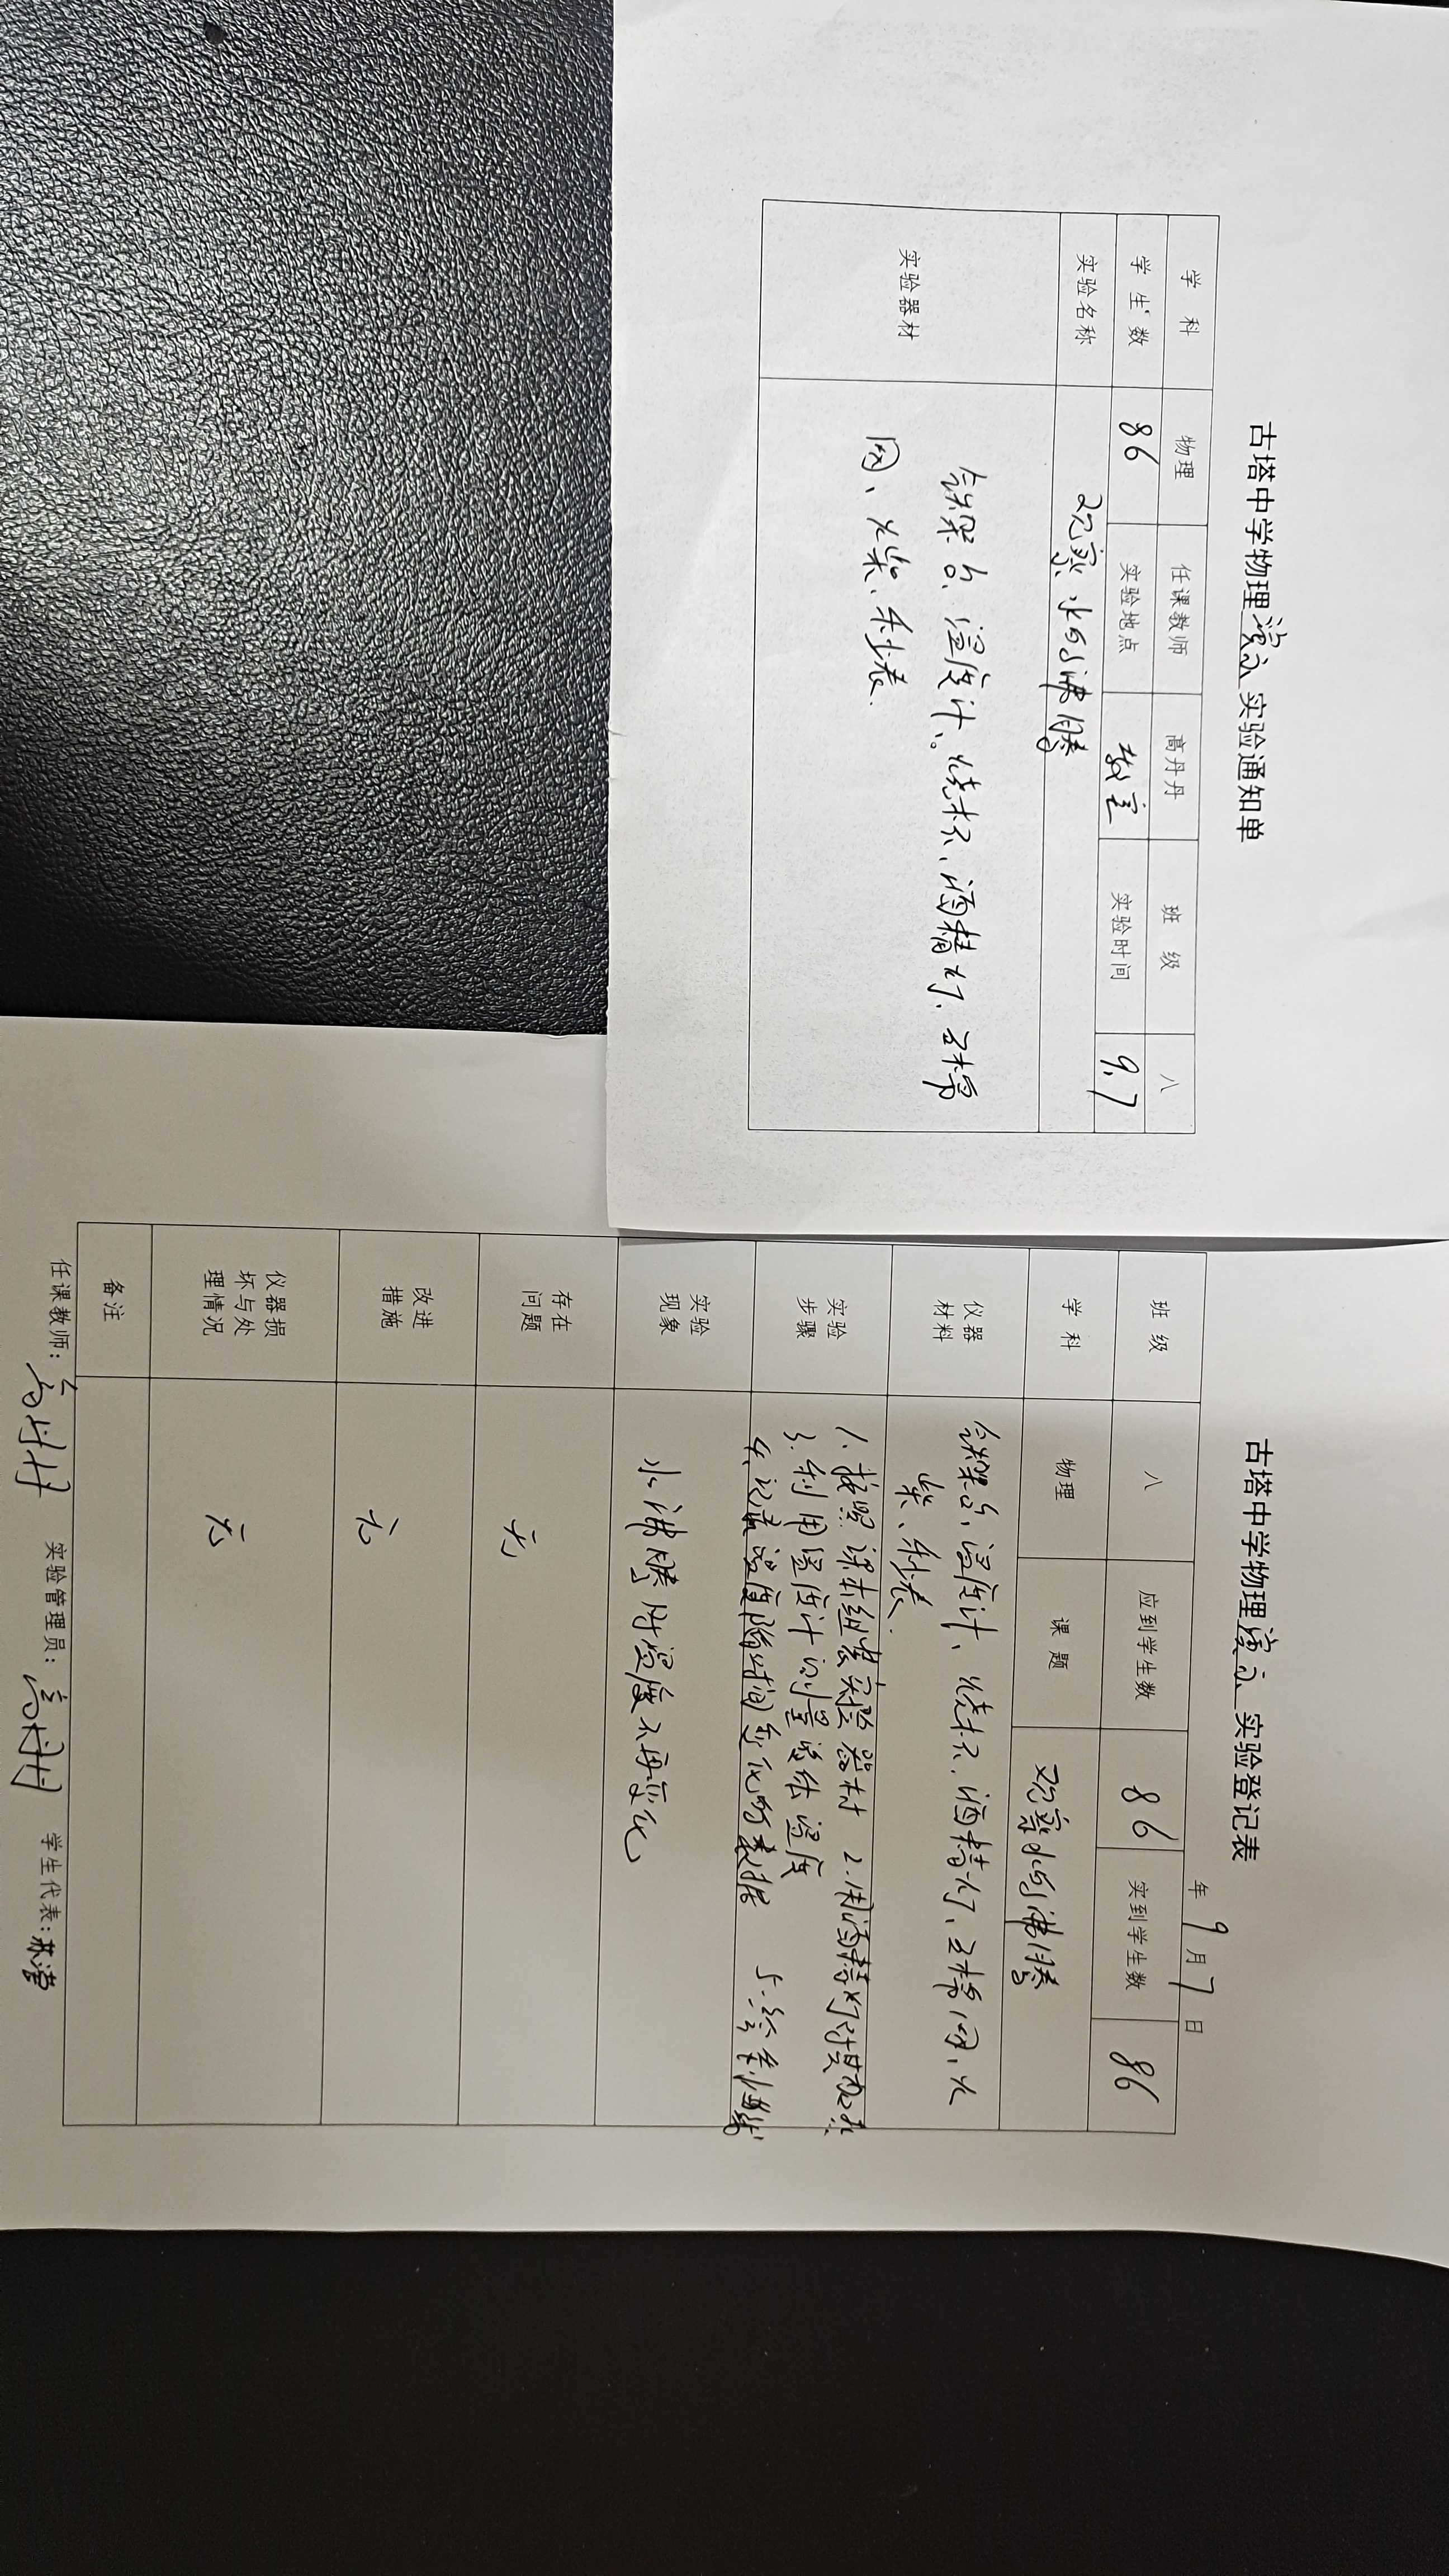 古塔中学物理演示实验通知单
学 科 物理 任课教师 高丹丹 班 级 八
学 生 数 86 实验地点 教室 实验时间 9.7
实验名称 观察水的沸腾
实验器材 铁架台、温度计、烧杯、酒精灯、石棉
网、火柴、秒表.
古塔中学物理演示实验登记表
年 9 月 7 日
班 级 八 应到学生数 86 实到学生数 86
学 科 物理 课 题 观察水的沸腾
仪器材料 铁架台、温度计、烧杯、酒精灯、石棉网、火
柴、秒表.
实验步骤 1、按照课本组装实验器材 2.用酒精灯对其加热
3.利用温度计测量液体温度
4.记录温度随时间变化的数据 5.绘制曲线
实验现象 水沸腾时温度不再变化
存在问题 无
改进措施 无
仪器损坏与处理情况 无
备注
任课教师：高丹丹 实验管理员：高丹丹 学生代表：苏莹